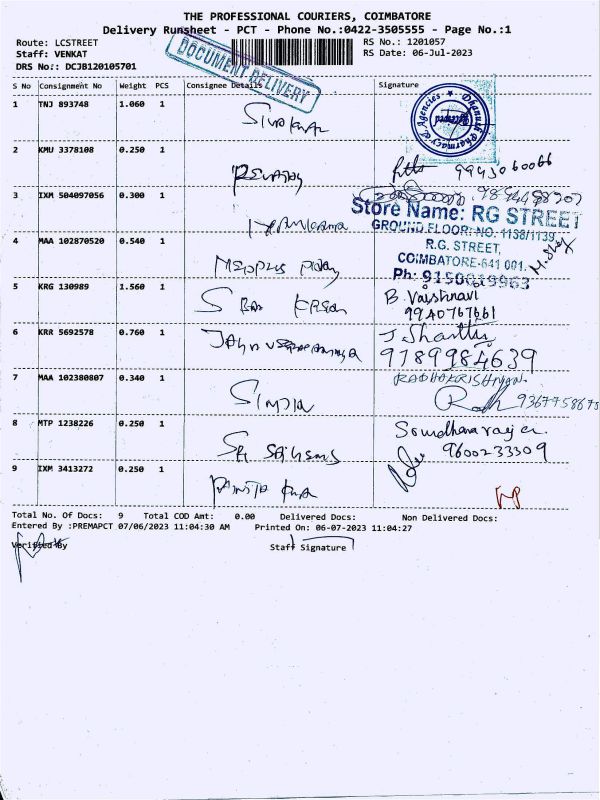 THE PROFESSIONAL COURIERS, COIMBATORE
Delivery Runsheet - PCT - Phone No.:0422-3505555 - Page No.:1
Route: LCSTREET
RS No.: 1201057
Staff: VENKAT
RS Date: 06-Jul-2023
DRS No.: DCJB120105701
DOCUMENT DELIVERY
S No Consignment No Weight PCS Consignee Details Signature
1 TNJ 893748 1.060 1
Dhanush Pharmacy & Agencies
2 KMU 3378108 0.250 1
3 IXM 504097056 0.300 1
Store Name: RG STREET
GROUND FLOOR: NO. 1138/1139
R.G. STREET,
4 MAA 102870520 0.540 1
COIMBATORE-641 001.
Ph: 9150019963
5 KRG 130989 1.560 1
B. Vaishnavi
9940767661
6 KRR 5692578 0.760 1
J. Shanthi
9789984639
7 MAA 102380807 0.340 1
RADHAKRISHNAN
8 MTP 1238226 0.250 1
9600233309
9 IXM 3413272 0.250 1
Total No. Of Docs: 9 Total COD Amt: 0.00 Delivered Docs: Non Delivered Docs:
Entered By :PREMAPCT 07/06/2023 11:04:30 AM Printed On: 06-07-2023 11:04:27
Verified By
Staff Signature